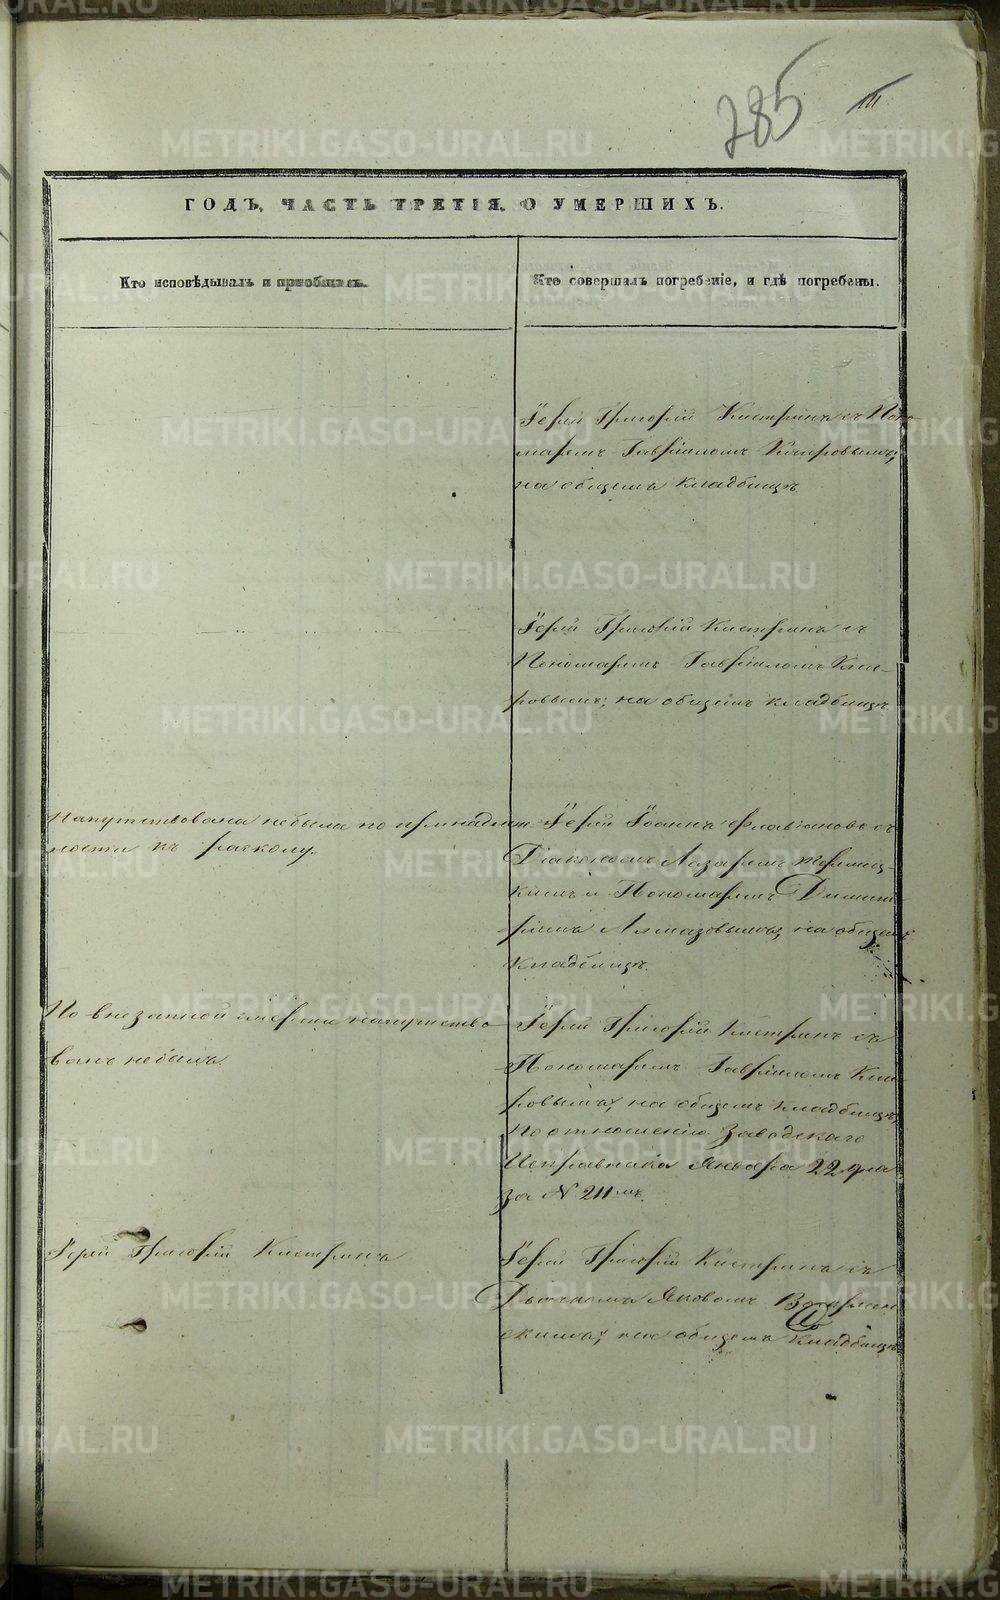 285
III
ГОДЪ, ЧАСТЬ ТРЕТІЯ, О УМЕРШИХЪ.
Кто исповѣдывалъ и пріобщалъ.
Кто совершалъ погребеніе, и гдѣ погребены.
Іерей Григорій Кистринъ съ Поно-
маремъ Гавріиломъ Кипровымъ,
на общемъ кладбищѣ
Іерей Григорій Кистринъ съ
Пономаремъ Гавріиломъ Кип-
ровымъ, на общемъ кладбищѣ
Напутствована небыла по принадлеж-
ности къ расколу.
Іерей Іоаннъ Флавіановъ съ
Діакономъ Лазаремъ
кимъ и Пономаремъ Димит-
ріемъ Алмазовымъ, на общемъ
кладбищѣ.
По внезапной смерти напутство-
ванъ небылъ.
Іерей Григорій Кистринъ съ
Пономаремъ Гавріиломъ Кип-
ровымъ, на общемъ кладбищѣ,
по отношенію Заводскаго
Исправника Января 22 дня
за № 211мъ.
Іерей Григорій Кистринъ
Іерей Григорій Кистринъ съ
Дьячкомъ Яковомъ
скимъ, на общемъ кладбищѣ.
METRIKI.GASO-URAL.RU